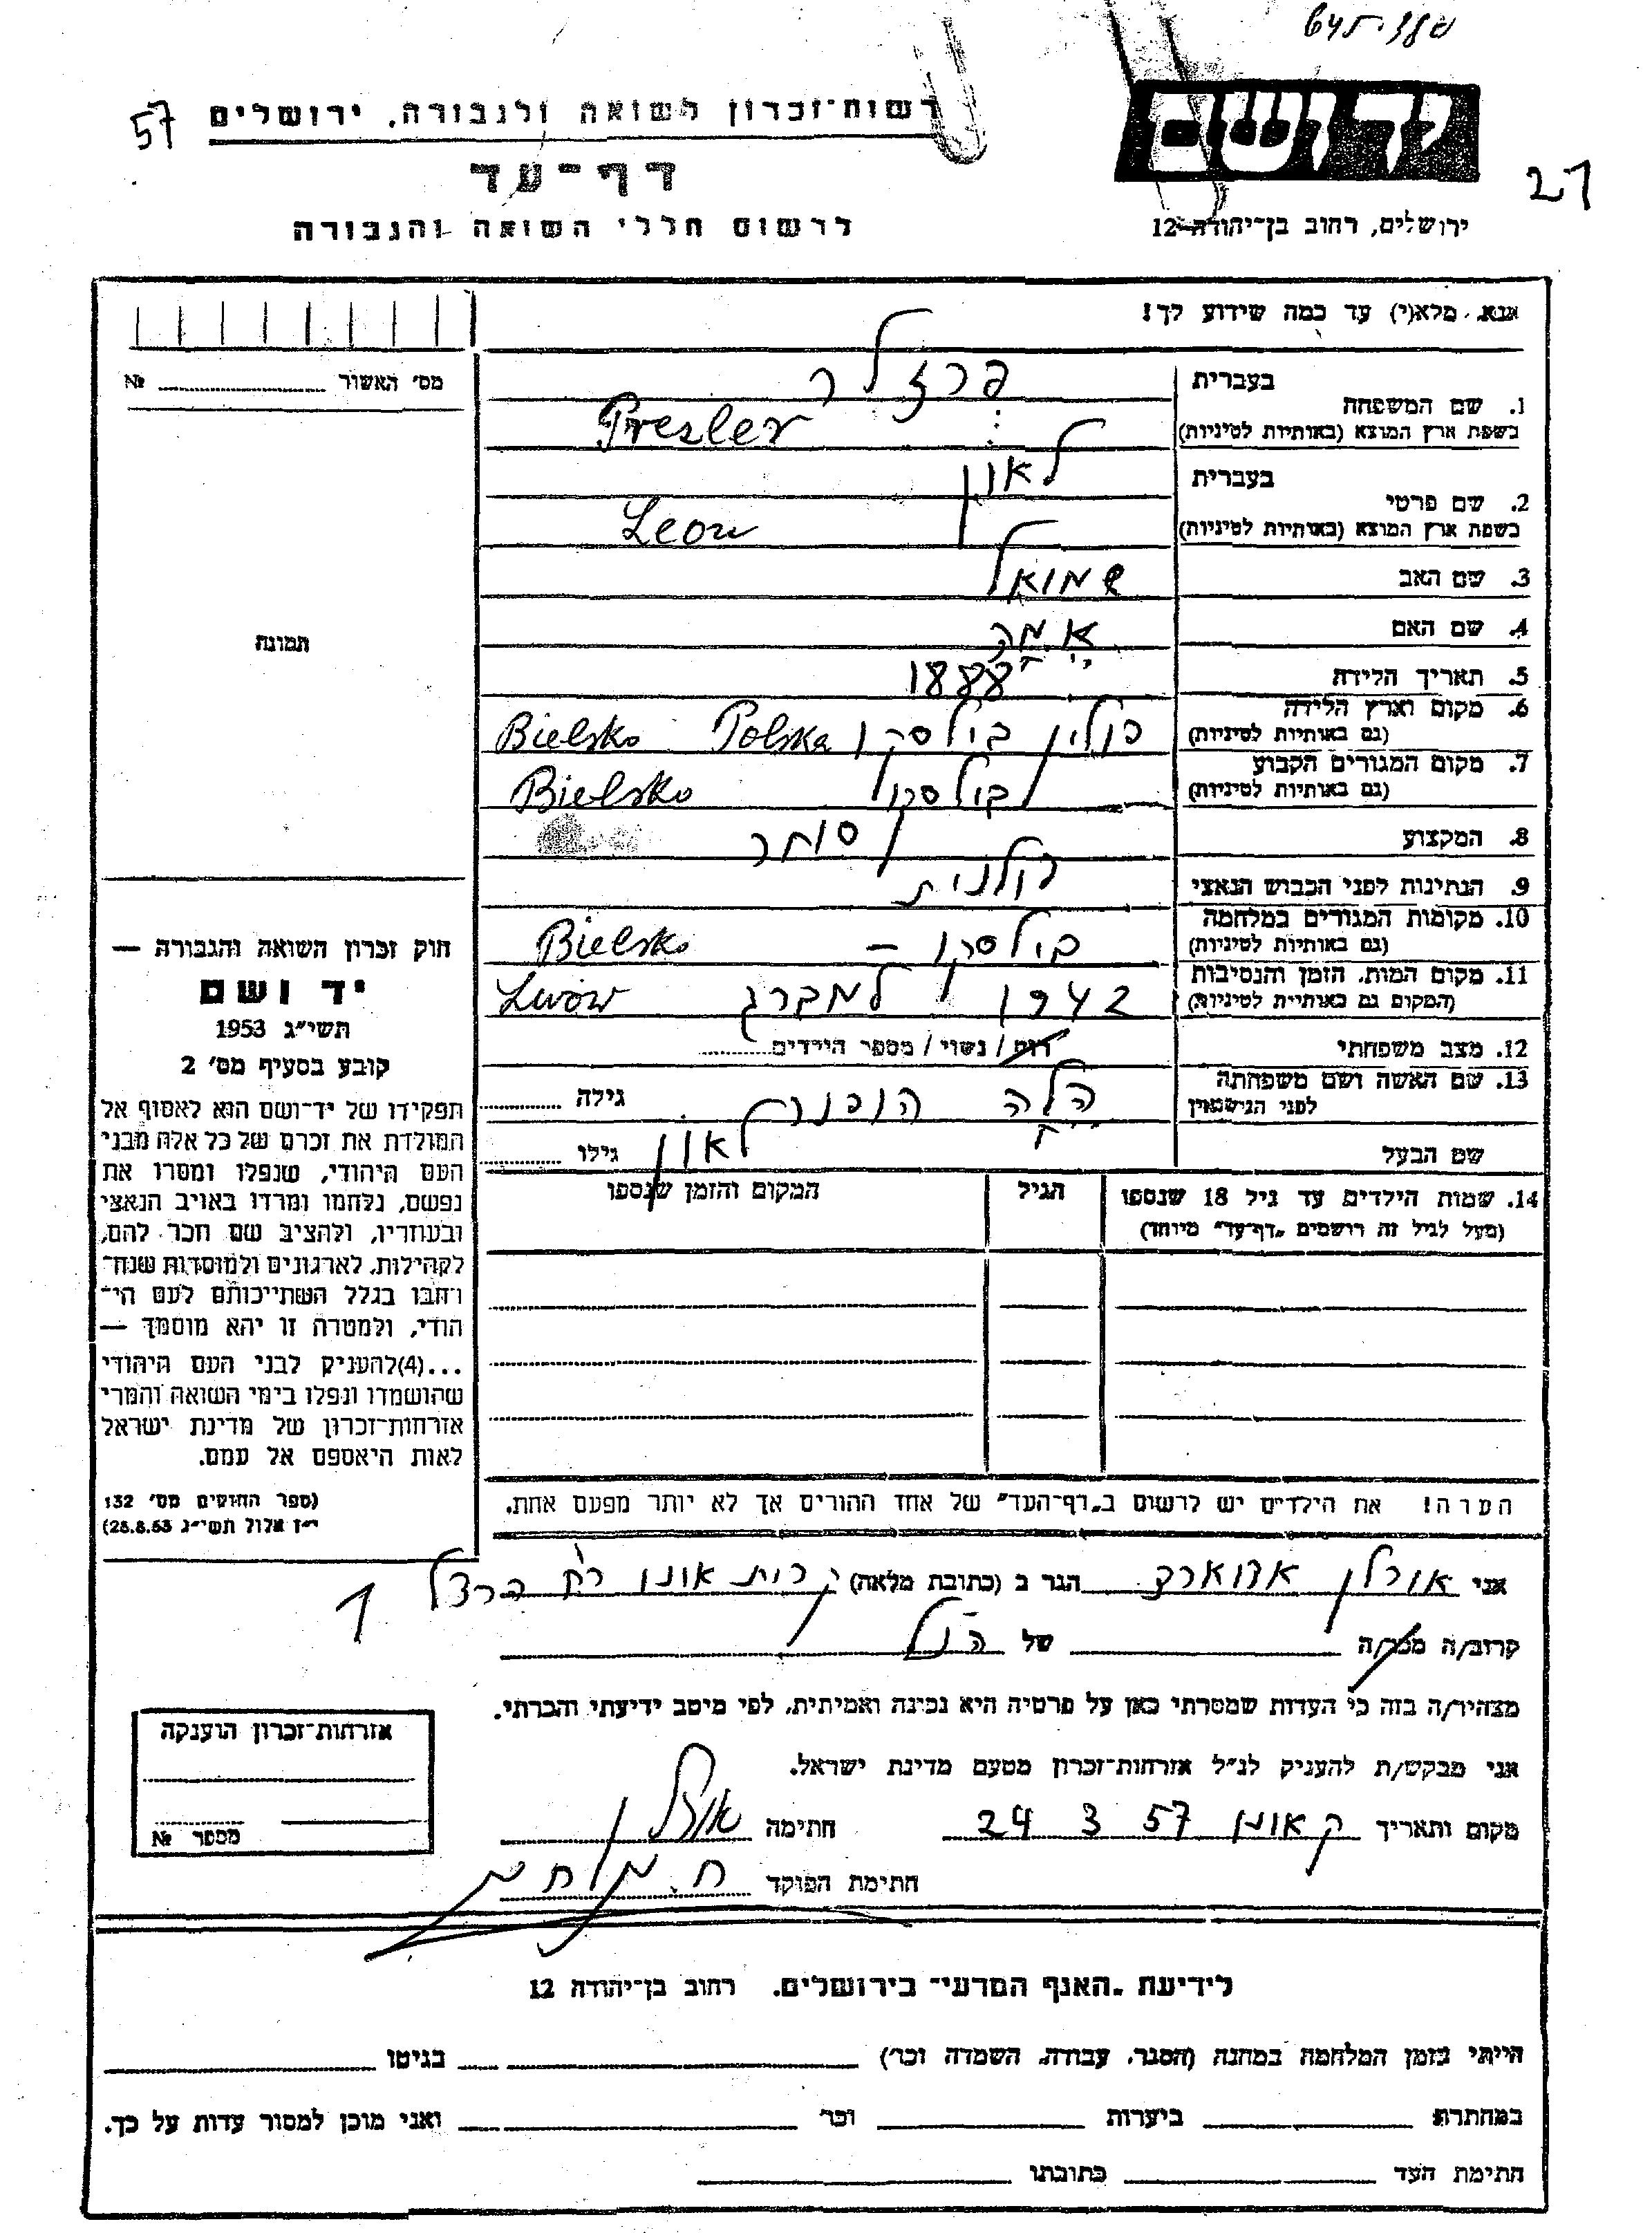 57
רשות־זכרון לשואה ולגבורה, ירושלים
דף־עד
לרשום חללי השואה והגבורה
ידושם
ירושלים, רחוב בן־יהודה 12
27
אנא, מלא(י) עד כמה שידוע לך!
מס׳ האשור № ..........
1. שם המשפחה בעברית פרזלר
בשפת ארץ המוצא (באותיות לטיניות) Presler
2. שם פרטי בעברית לאון
בשפת ארץ המוצא (באותיות לטיניות) Leon
3. שם האב שמואל
4. שם האם אמה
5. תאריך הלידה 1888
6. מקום וארץ הלידה (גם באותיות לטיניות) פולין בילסקו Polska Bielsko
7. מקום המגורים הקבוע (גם באותיות לטיניות) בילסקו Bielsko
8. המקצוע סוחר
9. הנתינות לפני הכבוש הנאצי פולנית
10. מקומות המגורים במלחמה (גם באותיות לטיניות) בילסקו – Bielsko
11. מקום המות, הזמן והנסיבות (המקום גם באותיות לטיניות) 1942 למברג Lwów
12. מצב משפחתי רווק / נשוי / מספר הילדים..........
13. שם האשה ושם משפחתה לפני הנישואין הלה גילה ..........
שם הבעל לאון גילו ..........
14. שמות הילדים עד גיל 18 שנספו הגיל המקום והזמן שנספו
(מעל לגיל זה רושמים „דף־עד״ מיוחד)
תמונה
חוק זכרון השואה והגבורה —
יד ושם
תשי״ג 1953
קובע בסעיף מס׳ 2
תפקידו של יד־ושם הוא לאסוף אל
המולדת את זכרם של כל אלה מבני
העם היהודי, שנפלו ומסרו את
נפשם, נלחמו ומרדו באויב הנאצי
ובעוזריו, ולהציב שם וזכר להם,
לקהילות, לארגונים ולמוסדות שנח־
רבו בגלל השתייכותם לעם הי־
הודי, ולמטרה זו יהא מוסמך —
...(4)להעניק לבני העם היהודי
שהושמדו ונפלו בימי השואה והמרי
אזרחות־זכרון של מדינת ישראל
לאות היאספם אל עמם.
(ספר החוקים מס׳ 132
י״ז אלול תשי״ג 28.8.53)
הערה! את הילדים יש לרשום ב„דף־העד״ של אחד ההורים אך לא יותר מפעם אחת.
אני אורלן אדוארד הגר ב (כתובת מלאה) קרית אונו רח הרצל 1
קרוב/ה מכר/ה של הנ״ל
מצהיר/ה בזה כי העדות שמסרתי כאן על פרטיה היא נכונה ואמיתית, לפי מיטב ידיעתי והכרתי.
אני מבקש/ת להעניק לנ״ל אזרחות־זכרון מטעם מדינת ישראל.
מקום ותאריך ק אונו 24 3 57 חתימה אורלן
חתימת הפוקד
אזרחות־זכרון הוענקה
מספר №
לידיעת „האגף המדעי״ בירושלים, רחוב בן־יהודה 12
הייתי בזמן המלחמה במחנה (הסגר, עבודה, השמדה וכו׳) בגיטו
במחתרת ביערות וכו׳ ואני מוכן למסור עדות על כך.
חתימת העד כתובתו